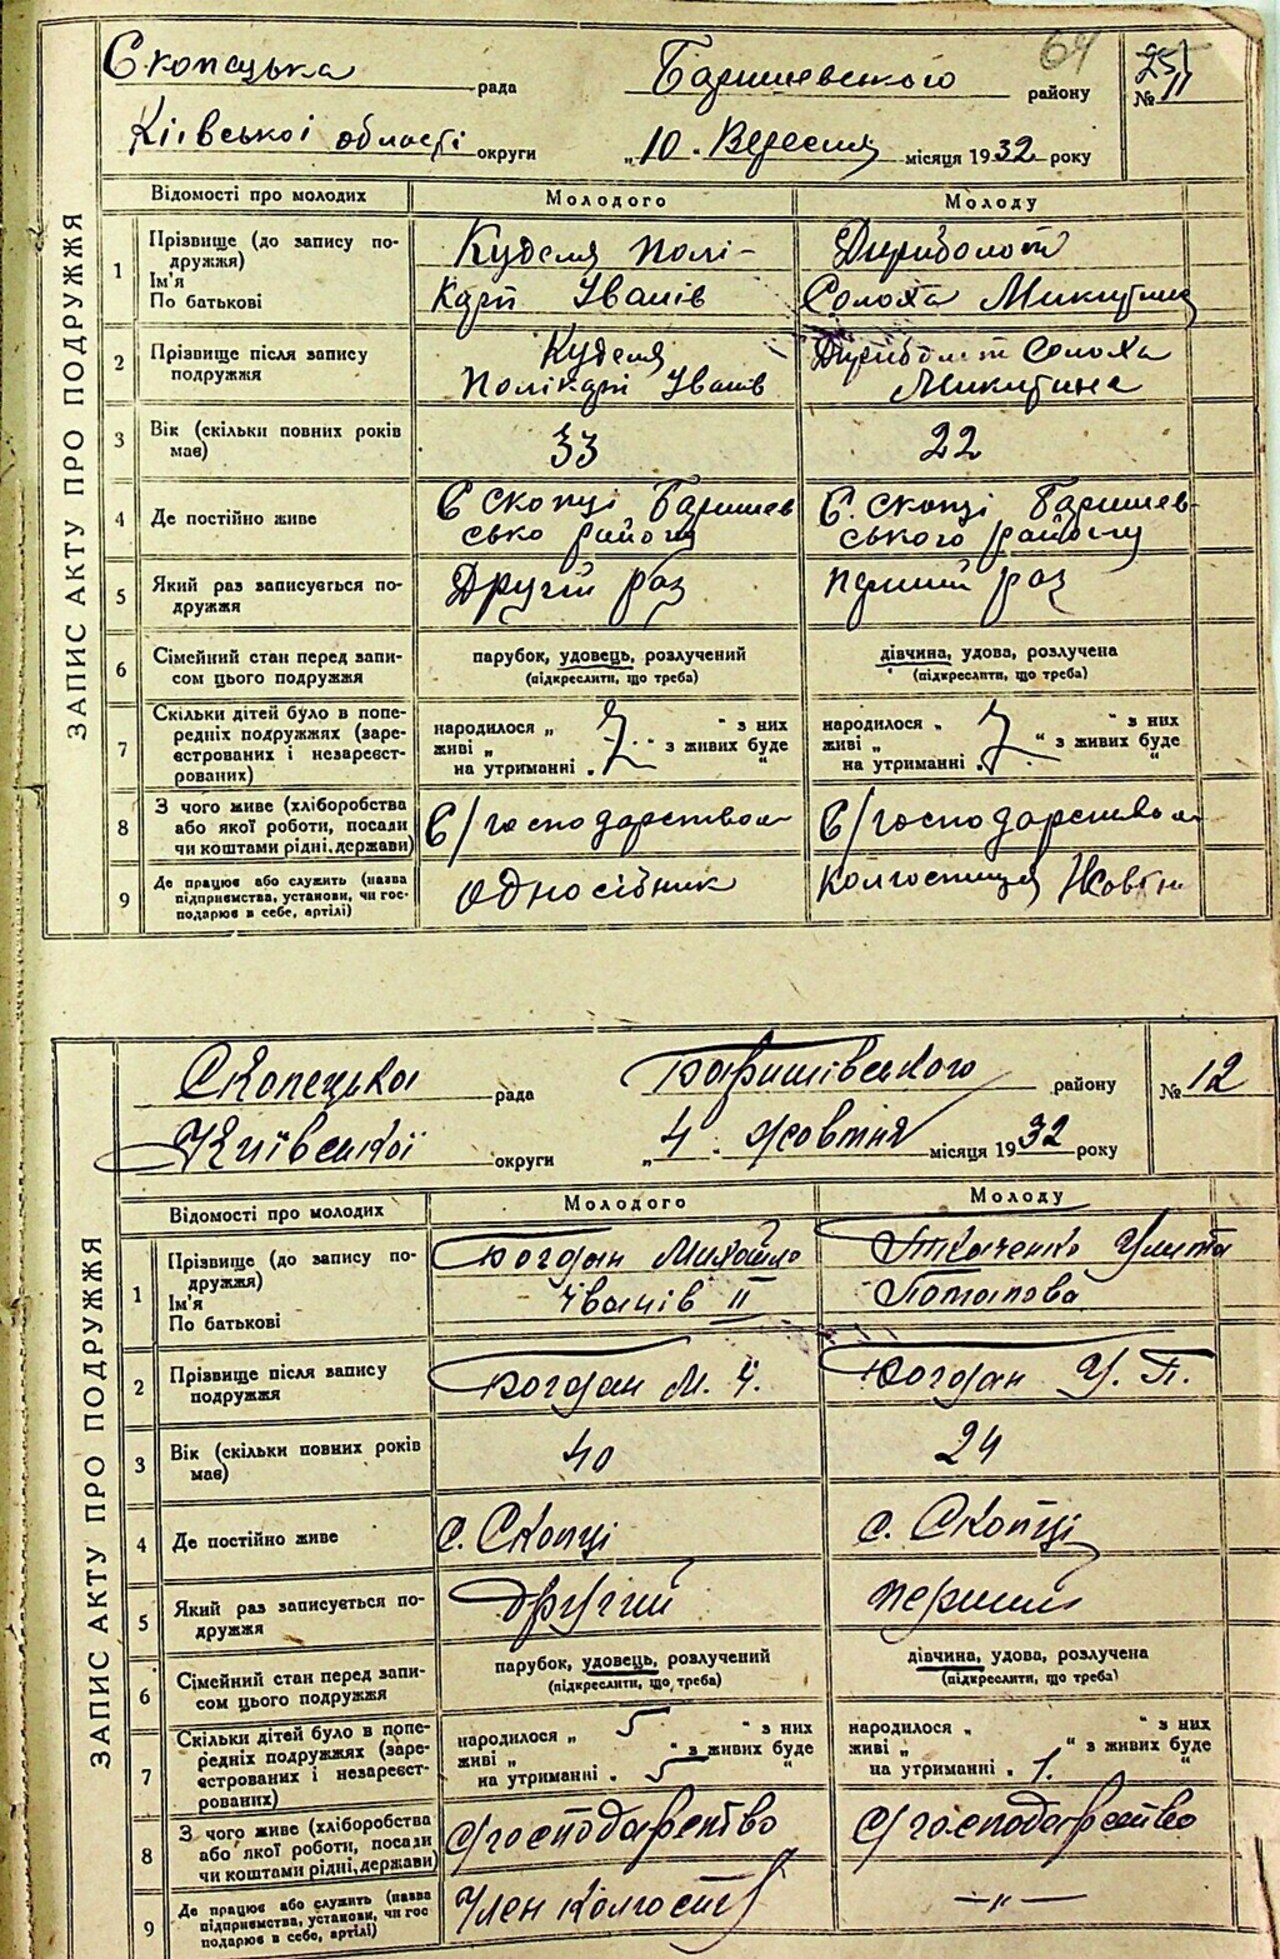 64
Скопецька рада Баришевського району № 11
Київської області округи „10. Вересня місяця 1932 року
ЗАПИС АКТУ ПРО ПОДРУЖЖЯ
Відомості про молодих Молодого Молоду
1 Прізвище (до запису по-
дружжя)
Ім'я
По батькові
Куделя Полі-
карп Іванів
Дириболот
Солоха Микитина
2 Прізвище після запису
подружжя
Куделя
Полікарп Іванів
Дириболот Солоха
Микитина
3 Вік (скільки повних років
має)
33
22
4 Де постійно живе
С Скопці Баришев
сько району
С. Скопці Баришев-
ського району
5 Який раз записується по-
дружжя
Другій раз
перший раз
6 Сімейний стан перед запи-
сом цього подружжя
парубок, удовець, розлучений
(підкреслити, що треба)
дівчина, удова, розлучена
(підкреслити, що треба)
7 Скільки дітей було в попе-
редніх подружжях (заре-
єстрованих і незареєст-
рованих)
народилося „ “ з них
живі „ “ з живих буде
на утриманні „ “
народилося „ “ з них
живі „ “ з живих буде
на утриманні „ “
8 З чого живе (хліборобства
або якої роботи, посади
чи коштами рідні, держави)
С/господарством
С/господарством
9 Де працює або служить (назва
підприємства, установи, чи гос-
подарює в себе, артілі)
односібник
колгоспиця Жовтн
Скопецька рада Баришівського району № 12
Київської округи „4. жовтня місяця 1932 року
ЗАПИС АКТУ ПРО ПОДРУЖЖЯ
Відомості про молодих Молодого Молоду
1 Прізвище (до запису по-
дружжя)
Ім'я
По батькові
Богдан Михайло
Іванів II
Ткаченко Улита
Потапова
2 Прізвище після запису
подружжя
Богдан М. І.
Богдан У. П.
3 Вік (скільки повних років
має)
40
24
4 Де постійно живе
с. Скопці
с. Скопці
5 Який раз записується по-
дружжя
другий
перший
6 Сімейний стан перед запи-
сом цього подружжя
парубок, удовець, розлучений
(підкреслити, що треба)
дівчина, удова, розлучена
(підкреслити, що треба)
7 Скільки дітей було в попе-
редніх подружжях (заре-
єстрованих і незареєст-
рованих)
народилося „ 5 “ з них
живі „ “ з живих буде
на утриманні „ 5 “
народилося „ “ з них
живі „ “ з живих буде
на утриманні „ 1. “
8 З чого живе (хліборобства
або якої роботи, посади
чи коштами рідні, держави)
с/господарство
с/господарство
9 Де працює або служить (назва
підприємства, установи, чи гос
подарює в себе, артілі)
Член колгоспу
—"—